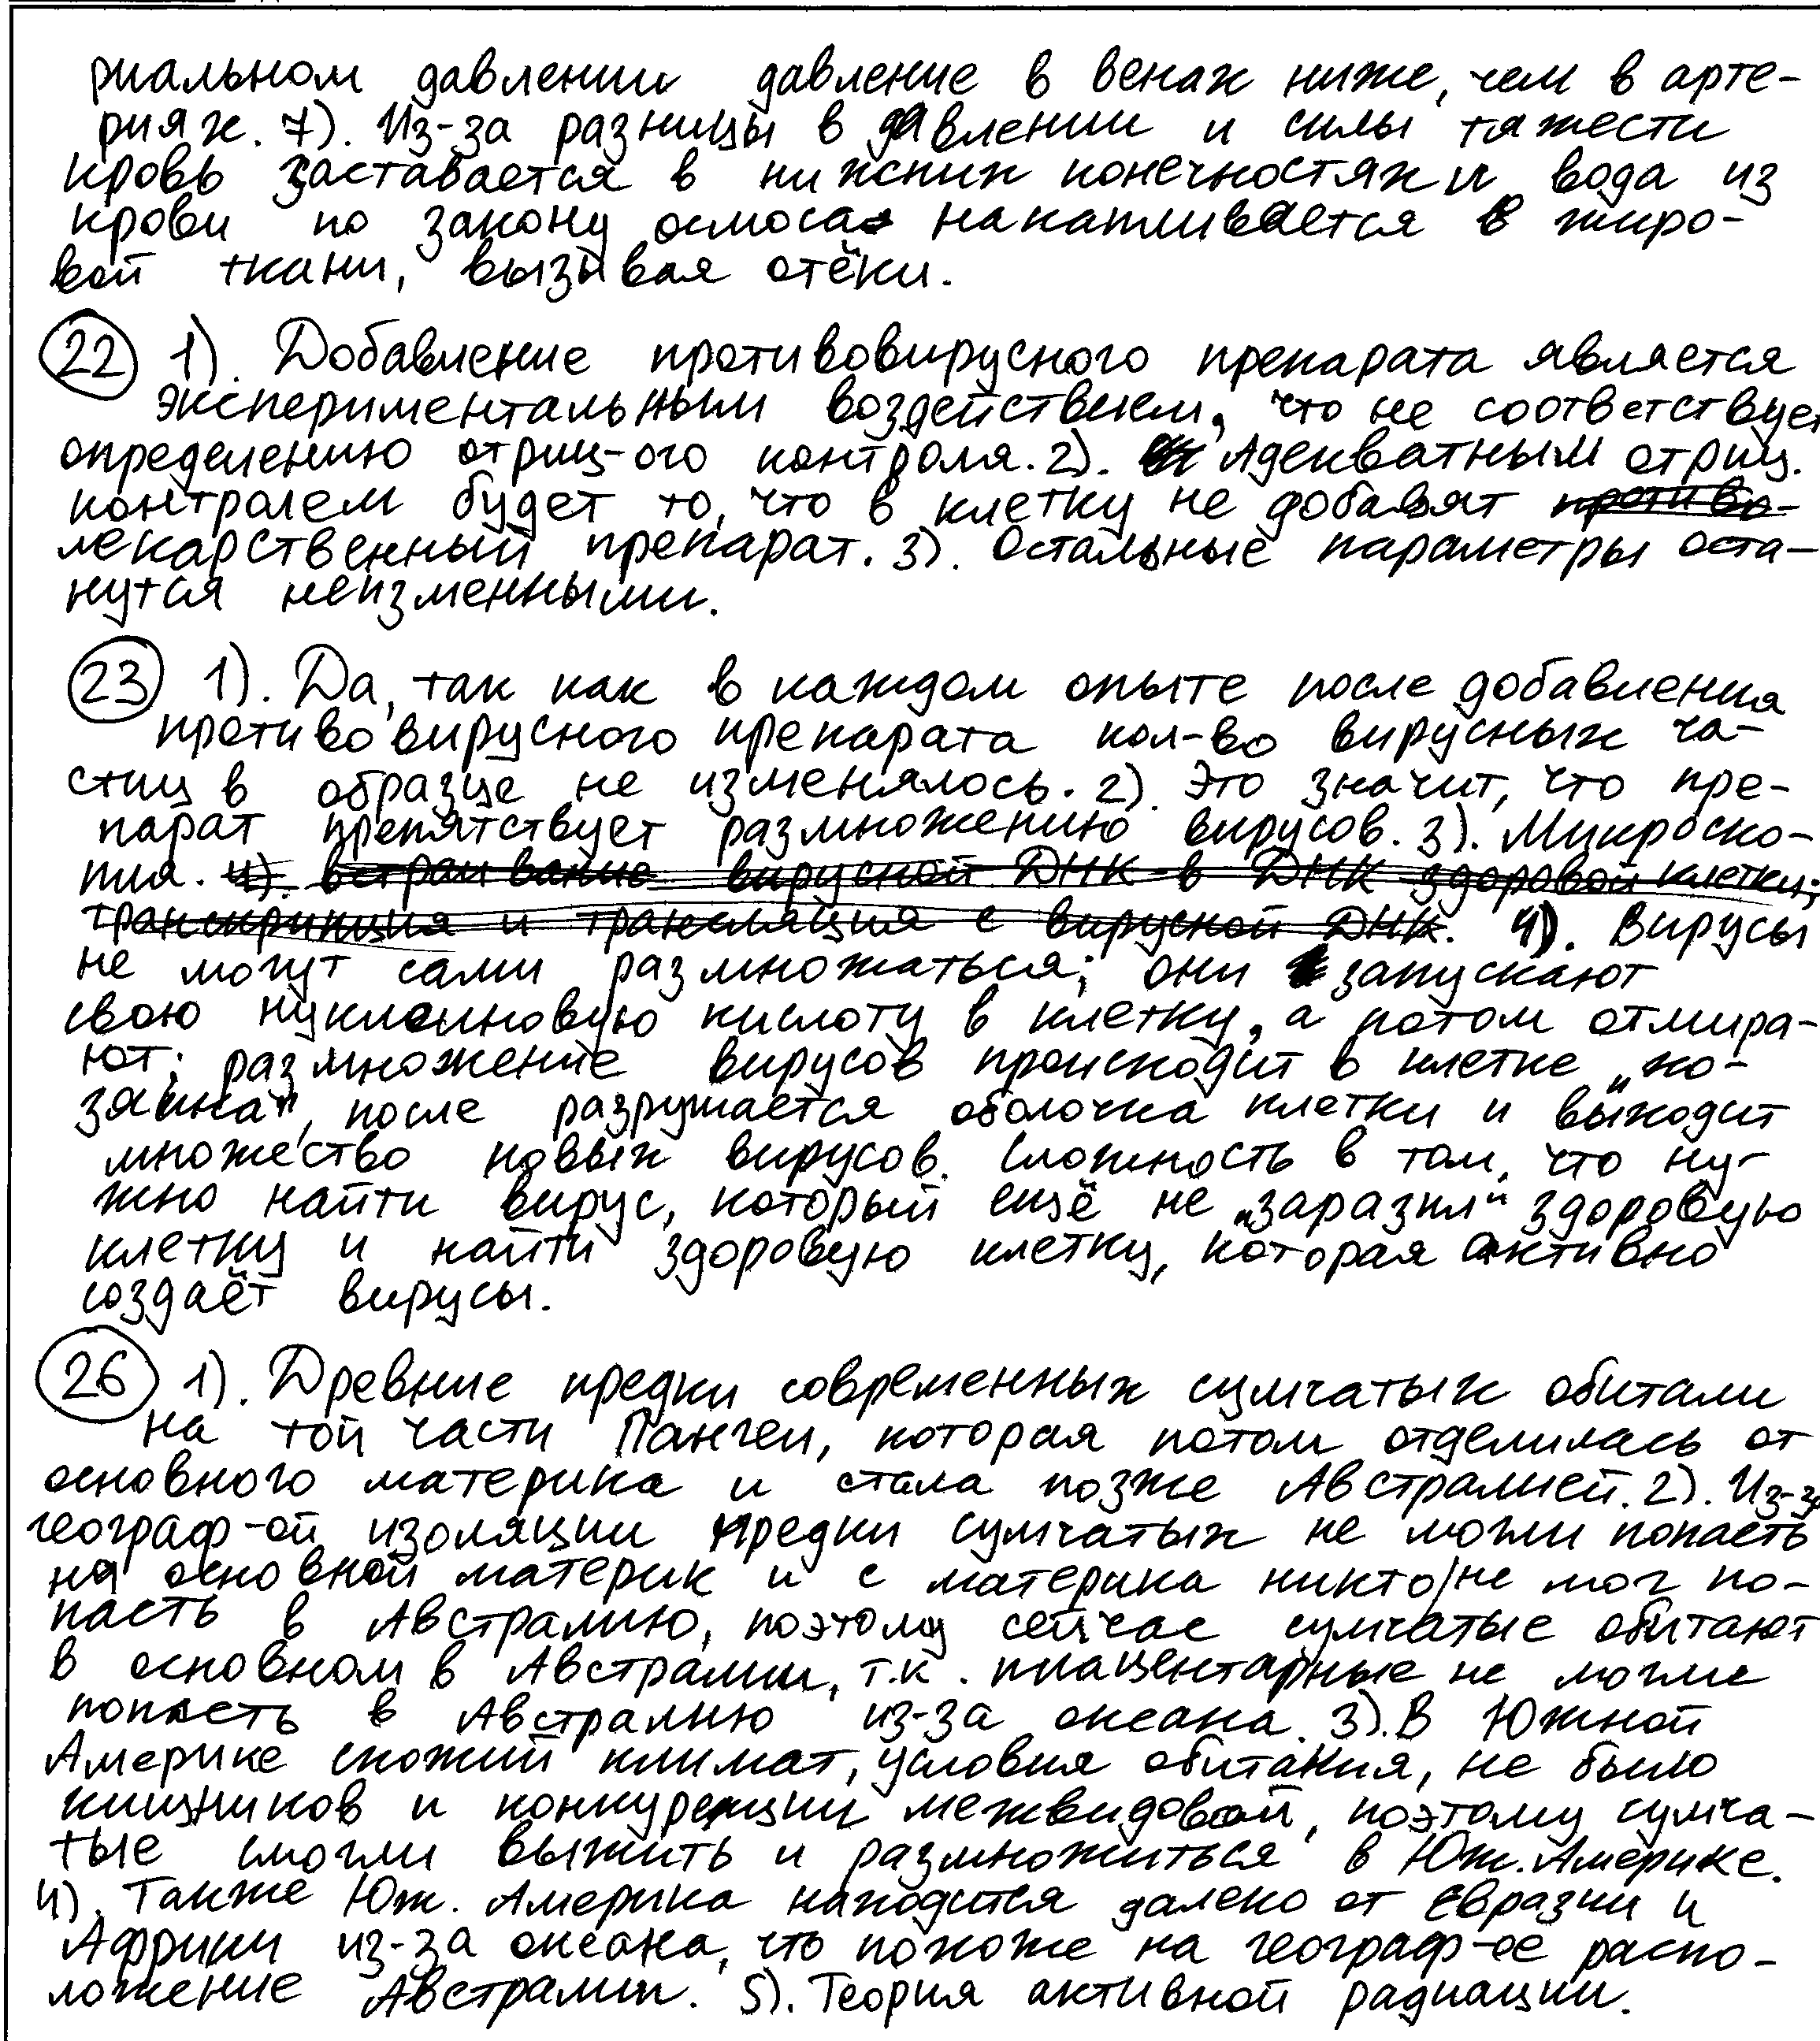 риальном давлении давление в венах ниже, чем в арте-
риях. 7). Из-за разницы в давлении и силы тяжести
кровь заставается в нижних конечностях и вода из
крови по закону осмоса накапливается в жиро-
вой ткани, вызывая отёки.
22 1). Добавление противовирусного препарата является
экспериментальным воздействием, что не соответствует
определению отриц-ого контроля. 2). Адекватным отриц.
контролем будет то, что в клетку не добавят ~~противо-~~
лекарственный препарат. 3). Остальные параметры оста-
нутся неизменными.
23 1). Да, так как в каждом опыте после добавления
противовирусного препарата кол-во вирусных ча-
стиц в образце не изменялось. 2). Это значит, что пре-
парат препятствует размножению вирусов. 3). Микроско-
пия. ~~4). встраивание вирусной ДНК в ДНК здоровой клетки;~~
~~транскрипция и трансляция с вирусной ДНК.~~ 4). Вирусы
не могут сами размножаться; они запускают
свою нуклеиновую кислоту в клетку, а потом отмира-
ют; размножение вирусов происходит в клетке „хо-
зяина", после разрушается оболочка клетки и выходит
множество новых вирусов. Сложность в том, что ну-
жно найти вирус, который ещё не „заразил" здоровую
клетку и найти здоровую клетку, которая активно
создаёт вирусы.
26 1). Древние предки современных сумчатых обитали
на той части Пангеи, которая потом отделилась от
основного материка и стала позже Австралией. 2). Из-за
географ-ой изоляции предки сумчатых не могли попасть
на основной материк и с материка никто/не мог по-
пасть в Австралию, поэтому сейчас сумчатые обитают
в основном в Австралии, т.к. плацентарные не могли
попасть в Австралию из-за океана. 3). В Южной
Америке схожий климат, условия обитания, не было
хищников и конкуренции межвидовой, поэтому сумча-
тые смогли выжить и размножиться в Юж. Америке.
4). Также Юж. Америка находится далеко от Евразии и
Африки из-за океана, что похоже на географ-ое распо-
ложение Австралии. 5). Теория активной радиации.